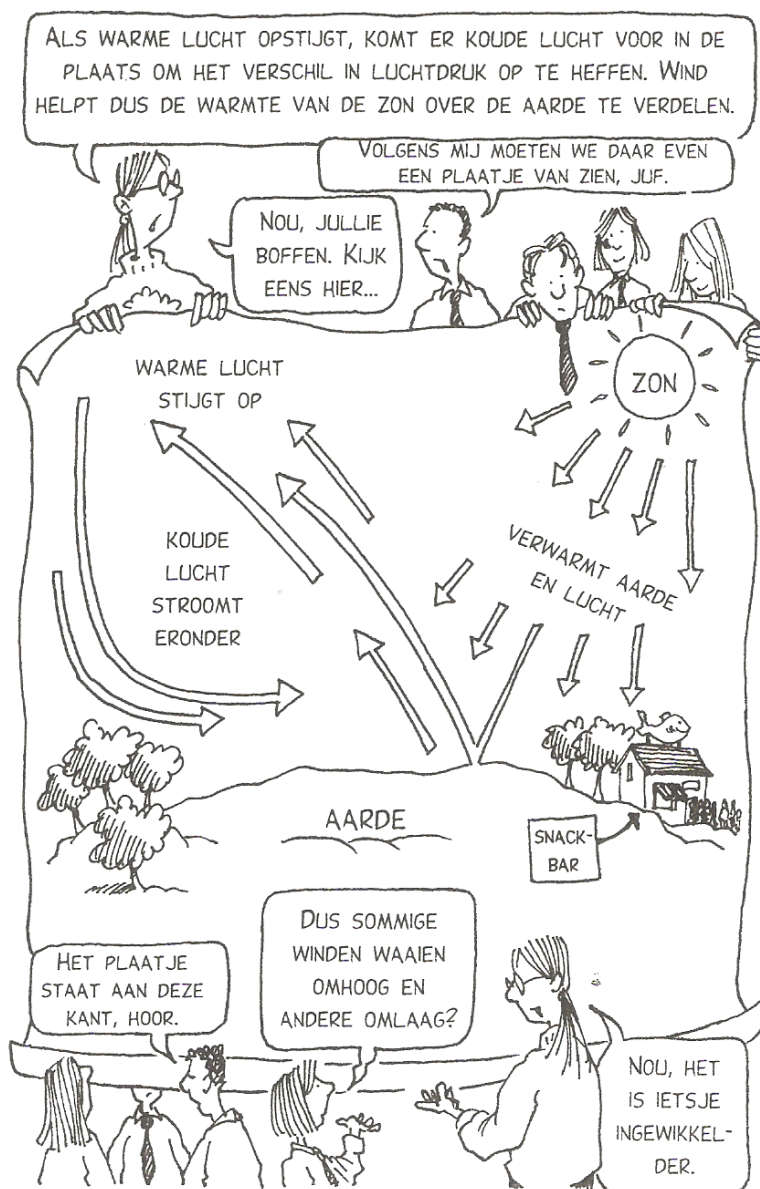 ALS WARME LUCHT OPSTIJGT, KOMT ER KOUDE LUCHT VOOR IN DE
PLAATS OM HET VERSCHIL IN LUCHTDRUK OP TE HEFFEN. WIND
HELPT DUS DE WARMTE VAN DE ZON OVER DE AARDE TE VERDELEN.
VOLGENS MIJ MOETEN WE DAAR EVEN
EEN PLAATJE VAN ZIEN, JUF.
NOU, JULLIE
BOFFEN. KIJK
EENS HIER...
WARME LUCHT
STIJGT OP
ZON
KOUDE
LUCHT
STROOMT
ERONDER
VERWARMT AARDE
EN LUCHT
AARDE
SNACK-
BAR
HET PLAATJE
STAAT AAN DEZE
KANT, HOOR.
DUS SOMMIGE
WINDEN WAAIEN
OMHOOG EN
ANDERE OMLAAG?
NOU, HET
IS IETSJE
INGEWIKKEL-
DER.